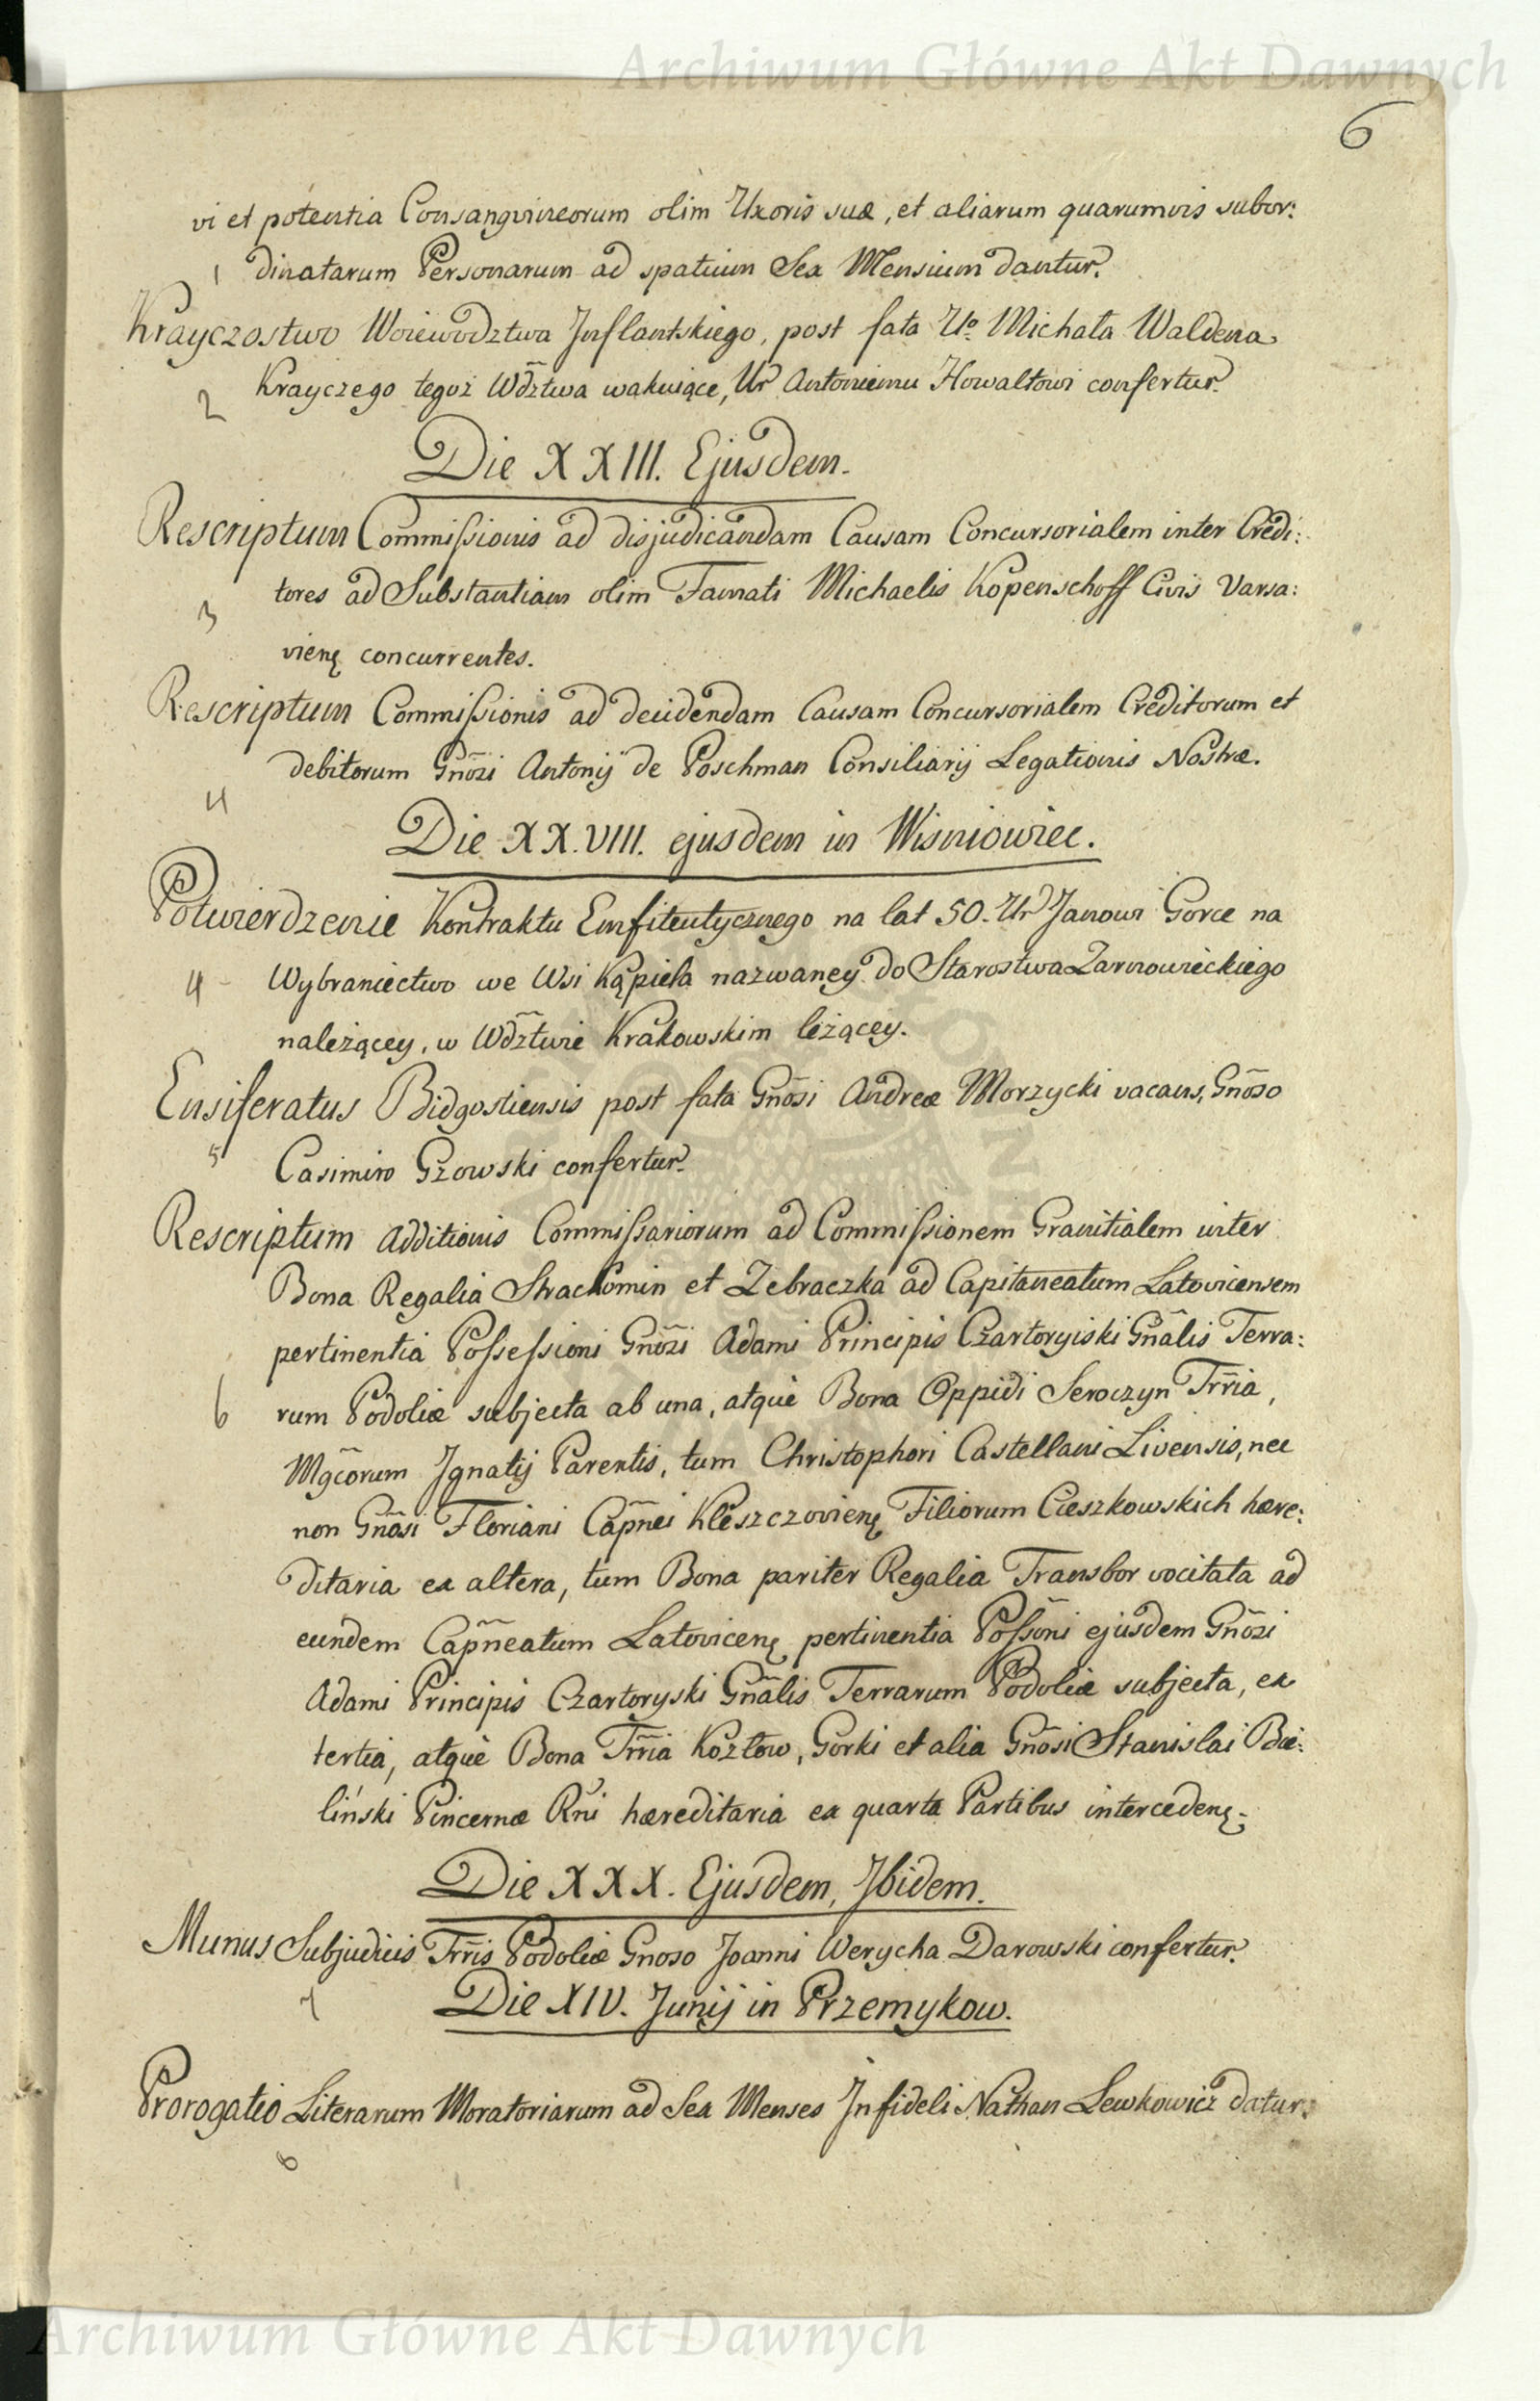 Archiwum Główne Akt Dawnych
6
vi et potentia Consangvineorum olim Uxoris suæ, et aliarum quarumvis subor:
1 dinatarum Personarum ad spatium Sex Mensium dantur.
Krayczostwo Woiewodztwa Inflantskiego, post fata Uo. Michała Waldena
Krayczego tegoż Wdztwa wakuiące, Ur Antoniemu Howałtowi confertur.
2
Die XXIII. Ejusdem.
Rescriptum Commissionis ad disjudicandam Causam Concursorialem inter Credi:
tores ad Substantiam olim Famati Michaelis Kopenschoff Civis Varsa:
3
vienę concurrentes.
Rescriptum Commissionis ad decidendam Causam Concursorialem Creditorum et
debitorum Gnozi Antonij de Poschman Consiliarij Legationis Nostræ.
4
Die XX.VIII. ejusdem in Wisniowiec.
Potwierdzenie Kontraktu Emfiteutycznego na lat 50. Ur Janowi Gorce na
4 Wybraniectwo we Wsi Kąpiela nazwaney do Starostwa Zarnowieckiego
należącey, w Wdztwie Krakowskim leżącey.
Ensiferatus Bidgostiensis post fata Gnosi Andreæ Morzycki vacans, Gnoso
5 Casimiro Gzowski confertur.
Rescriptum Additionis Commissariorum ad Commissionem Granitialem inter
Bona Regalia Strachomin et Zebraczka ad Capitaneatum Latovicensem
pertinentia Possessioni Gnozi Adami Principis Czartoryiski Gnalis Terra:
6 rum Podoliæ subjecta ab una, atquè Bona Oppidi Seroczyn Trria,
Mgcorum Ignatij Parentis, tum Christophori Castellani Livensis, nec
non Gnosi Floriani Capnei Kleszczovienę Filiorum Cieszkowskich hære:
ditaria ex altera, tum Bona pariter Regalia Transbor vocitata ad
eundem Capneatum Latovicenę pertinentia Possoni ejusdem Gnozi
Adami Principis Czartoryski Gnalis Terrarum Podoliæ subjecta, ex
tertia, atquè Bona Trria Kozłow, Gorki et alia Gnosi Stanislai Bie:
liński Pincernæ Rni hæreditaria ex quarta Partibus intercedenę.
Die XXX. Ejusdem, Ibidem.
Munus Subjudicis Trris Podoliæ Gnoso Joanni Werycha Darowski confertur.
7
Die XIV. Junij in Przemykow.
Prorogatio Literarum Moratoriarum ad Sex Menses Infideli Nathan Lewkowicz datur.
6
Archiwum Główne Akt Dawnych